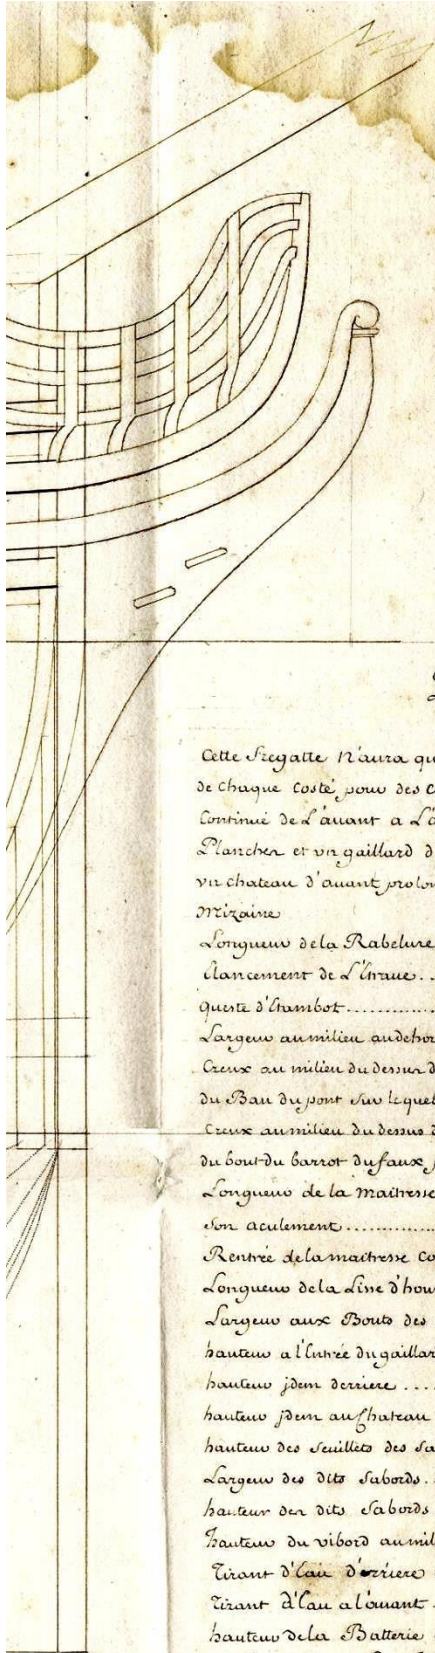 Cette fregatte N'aura qu
de chaque Costé pour des C
Continué de L'auant a L'a
Plancher et vn gaillard d
vn chateau d'auant prolon
Mizaine
Longueur de la Rabelure
Elancement de L'Etraue..
Queste d'Etambot..............
Largeur au milieu au dehor
Creux au milieu du dessus d
du Bau du pont sur lequel
Creux au milieu du dessus d
du bout du barrot du faux p
Longueur de la Maitresse
son aculement..............
Rentrée de la maitresse Co
Longueur de la Lisse d'hou
Largeur aux Bouts des
hauteur a l'Entrée du gaillar
hauteur jdem derriere ....
hauteur jdem au Chateau
hauteur des seuillets des sa
Largeur des dits sabords.
hauteur des dits sabords
hauteur du vibord au mil
Tirant d'Eau d'erriere
Tirant d'Eau a l'auant.
hauteur de la Batterie